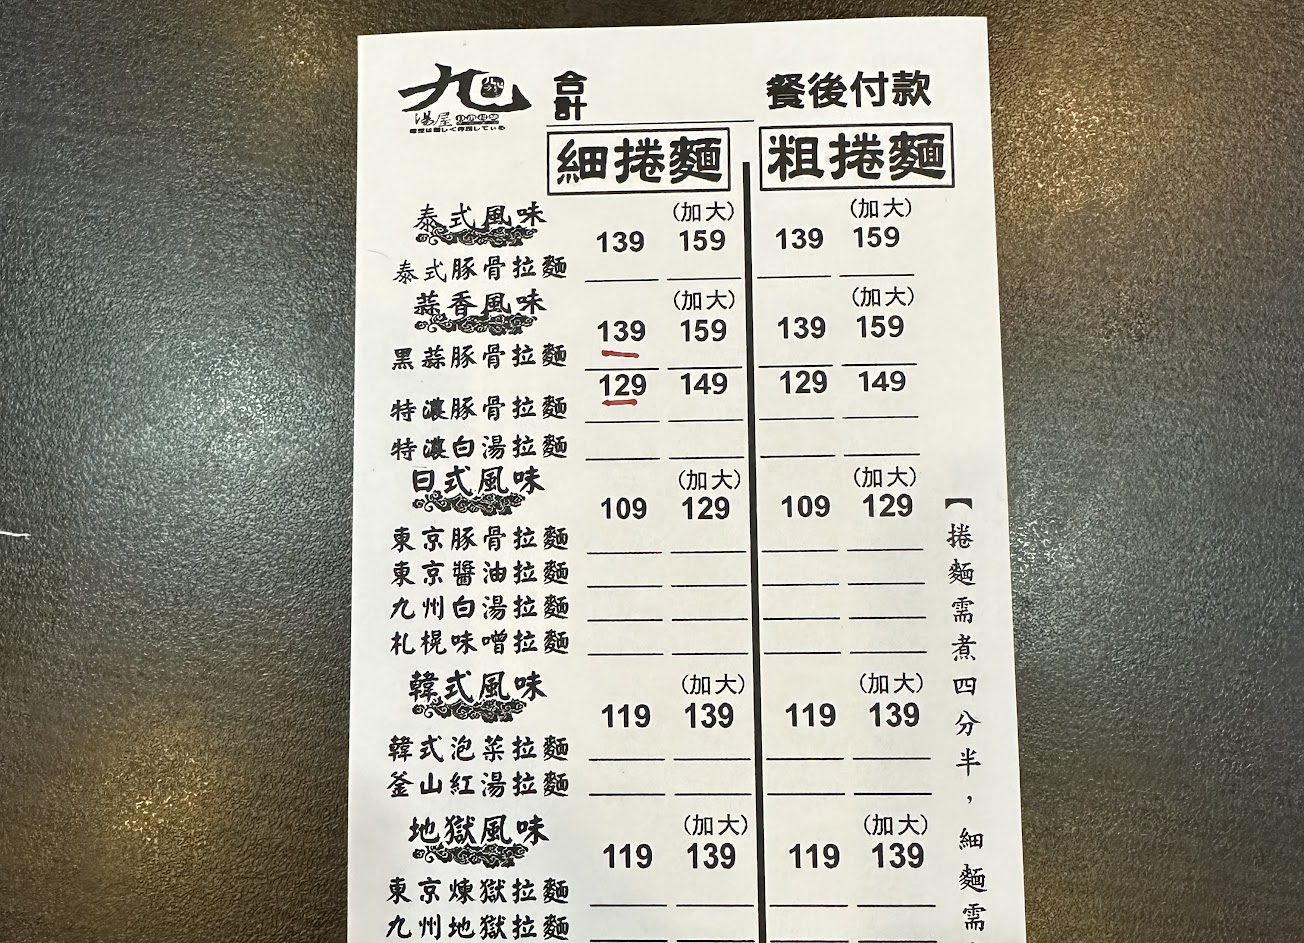 九
湯屋
合計
餐後付款
細捲麵 粗捲麵
泰式風味 (加大) (加大)
139 159 139 159
泰式豚骨拉麵
蒜香風味 (加大) (加大)
139 159 139 159
黑蒜豚骨拉麵
129 149 129 149
特濃豚骨拉麵
特濃白湯拉麵
日式風味 (加大) (加大)
109 129 109 129
東京豚骨拉麵
東京醬油拉麵
九州白湯拉麵
札幌味噌拉麵
韓式風味 (加大) (加大)
119 139 119 139
韓式泡菜拉麵
釜山紅湯拉麵
地獄風味 (加大) (加大)
119 139 119 139
東京煉獄拉麵
九州地獄拉麵
【捲麵需煮四分半，細麵需